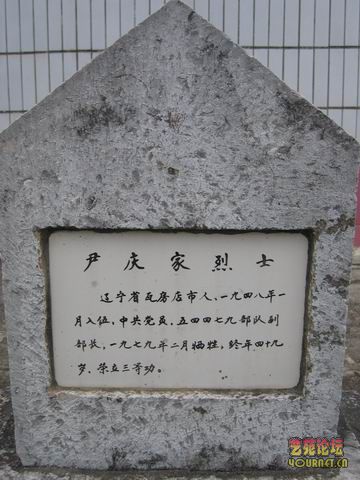 尹庆家烈士
辽宁省瓦房店市人，一九四八年一
月入伍，中共党员，五四四七九部队副
部长，一九七九年二月牺牲，终年四十九
岁，荣立三等功。
艺苑论坛
YOURNET.CN